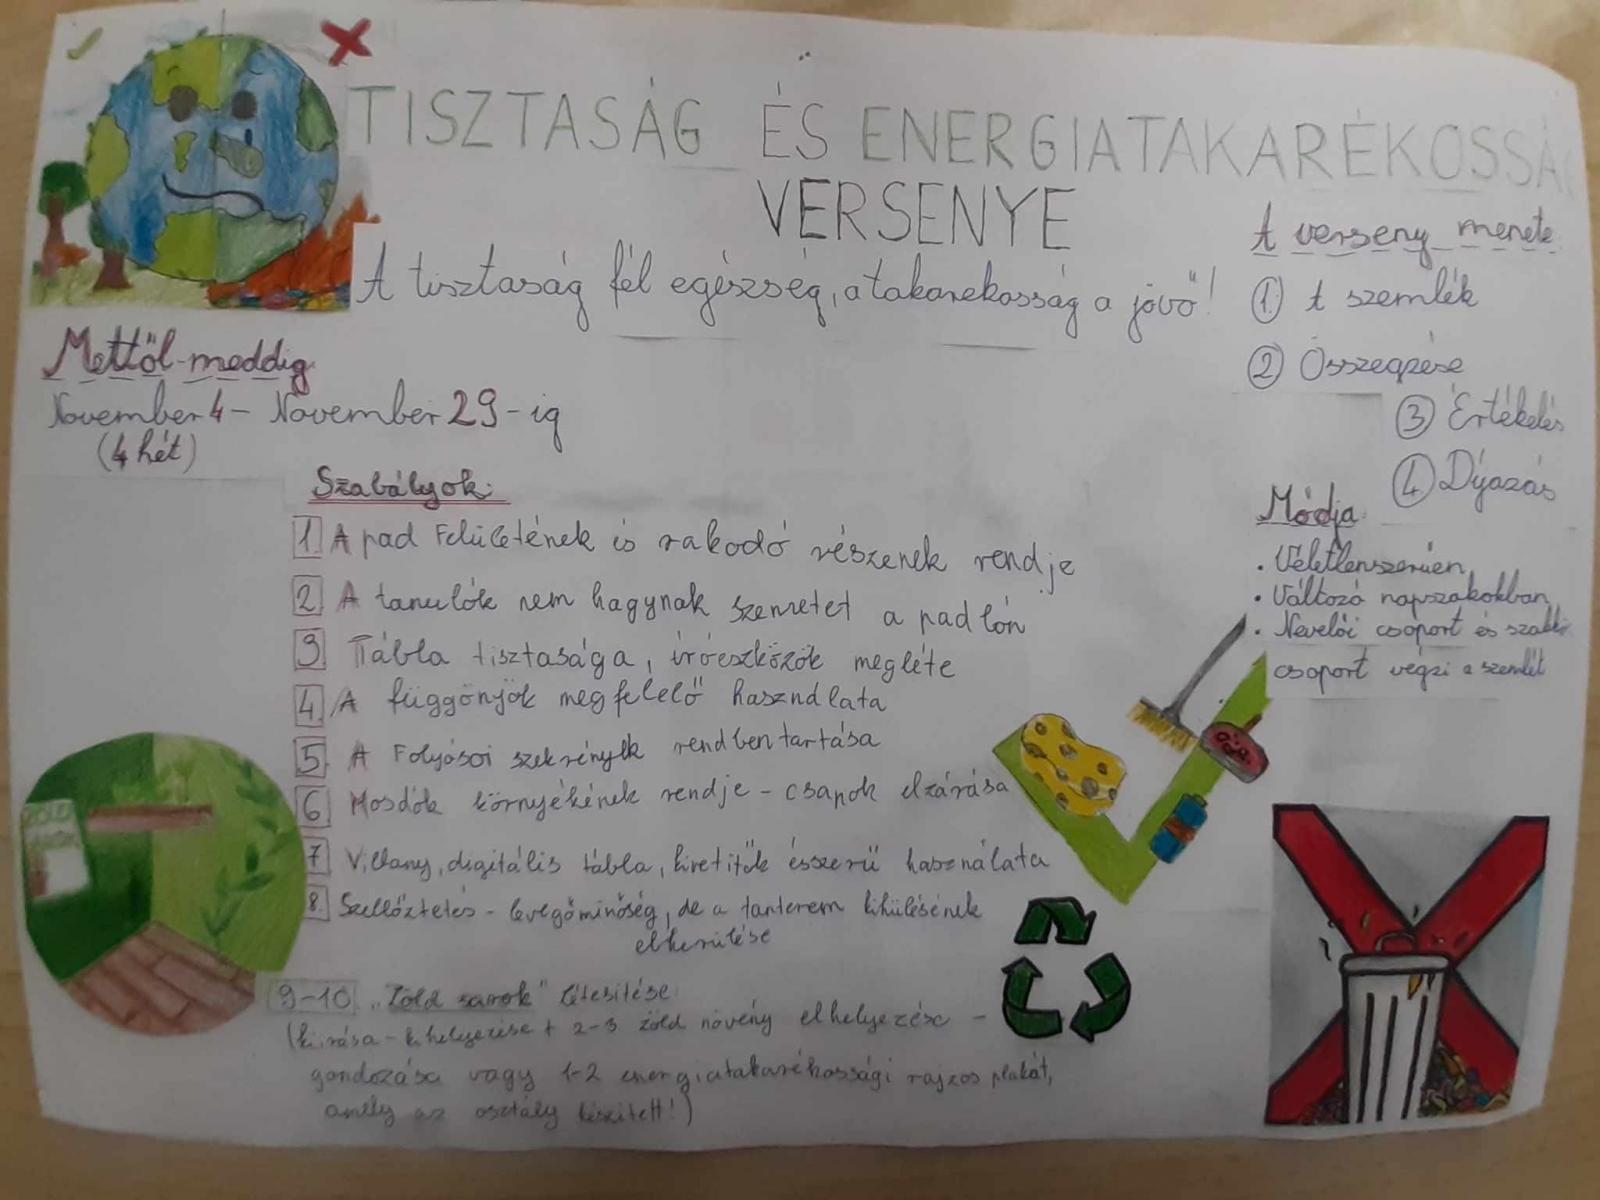 TISZTASÁG ÉS ENERGIATAKARÉKOSSÁG
VERSENYE
A tisztaság fél egészség, a takarékosság a jövő!
Mettől-meddig
November 4 - November 29-ig
(4 hét)
A verseny menete
1. A szemlék
2 Összegzése
3 Értékelés
4 Díjazás
Módja
• Véletlenszerűen
• Változó napszakokban
• Nevelői csoport és
csoport végzi a szemlét
Szabályok:
1. A pad Felületének és rakodó részenek rendje
2 A tanulók nem hagynak szemetet a padlón
3 Tábla tisztasága, íróeszközök megléte
4. A függönyök megfelelő használata
5 A Folyósoi szekrények rendben tartása
6 Mosdók környékének rendje - csapok elzárása
7 Villany, digitális tábla, kivetitők ésszerű használata
8. Szellőztetés - levegőminőség, de a tanterem kihülésének
elkerülése
9-10 "Zöld sarok" létesitése
(kiirása - kihelyezése + 2-3 zöld növény elhelyezése -
gondozása vagy 1-2 energiatakarékossági rajzos plakát,
amely az osztály készitett!)
ZÖLD
SAROK